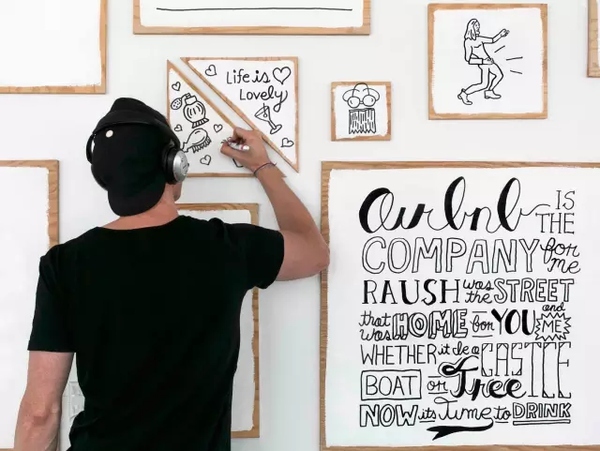 Life is
Lovely
Airbnb IS
THE
COMPANY for
me
RAUSH was the STREET
that was HOME for YOU and ME
WHETHER it be a CASTLE
BOAT or Tree
NOW its Time to DRINK